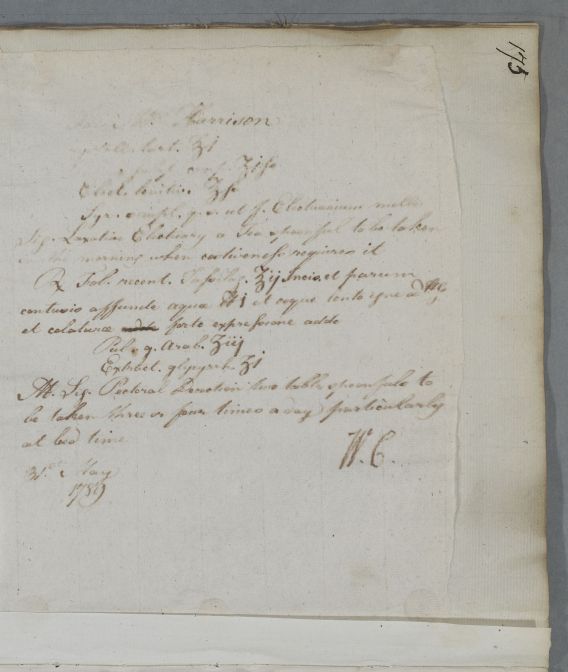 173
Harrison
tart. ʒj
ʒjſs
Elect. lenitiv. ʒſs
Syr. simpl. q. s. ut f. Electuarium molle
Sig. Laxative Electuary a Tea spoonful to be taken
in the morning when costiveness requires it
℞ Fol. recent. Tussilag. ʒij Incis. et parum
contusis affunde aqua ℔j et coque lento igne ad ℔ſs
et colaturæ forte expressione adde
Pulv. g. Arab. ʒiij
Extract. glycyrrh. ʒj
M. Sig. Pectoral Decoction two table spoonfuls to
be taken three or four times a day particularly
at bed time
W. C.
31st May
1789